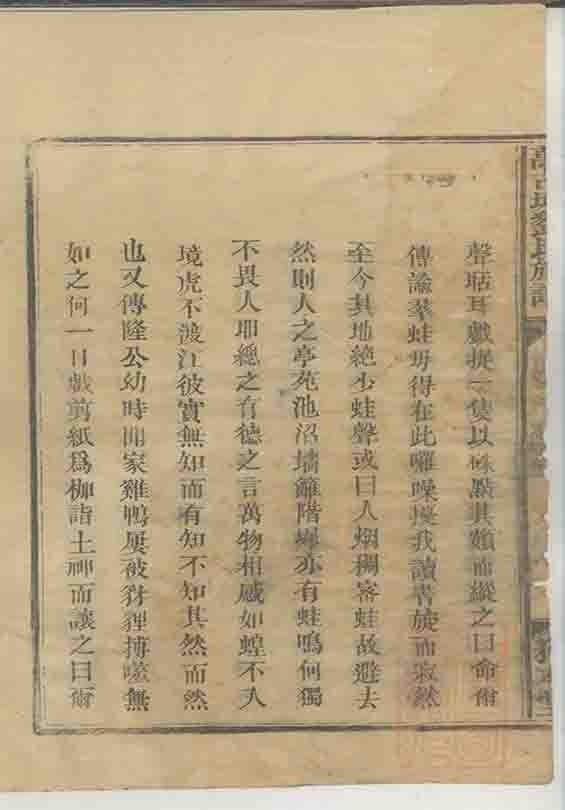 聲聒耳戲捉一隻以硃點其頭而縱之曰命爾
傳諭羣蛙毋得在此囉噪擾我讀書旋而寂然
至今其地絶少蛙聲或曰人烟稠密蛙故避去
然則人之亭苑池沼墻籬階墀亦有蛙鳴何獨
不畏人耶總之有德之言萬物相感如蝗不入
境虎不渡江彼實無知而有知不知其然而然
也又傳隆公幼時聞家雞鴨屢被豺狸搏噬無
如之何一日戲剪紙爲枷詣土神而讓之曰爾